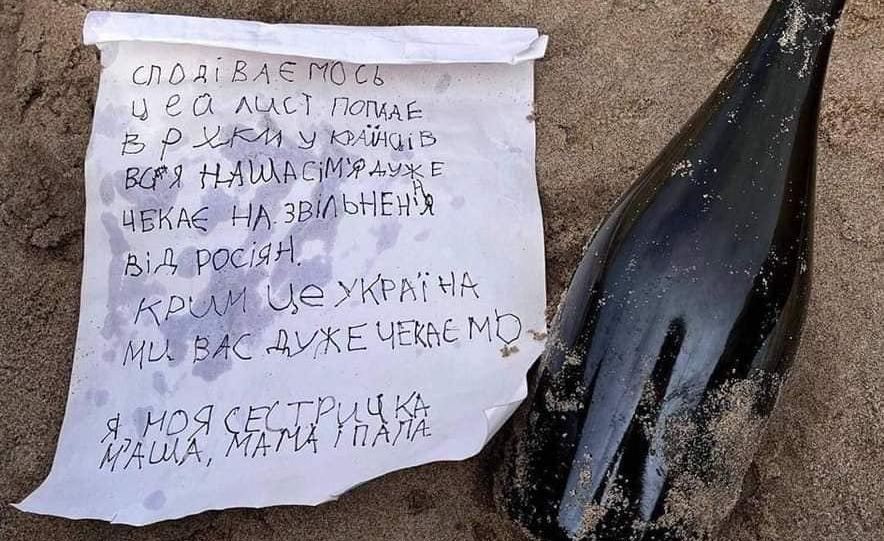 СПОДІВАЄМОСЬ
ЦЕЙ ЛИСТ ПОПАДЕ
В РУКИ УКРАЇНЦІВ
ВСЯ НАША СІМ'Я ДУЖЕ
ЧЕКАЄ НА ЗВІЛЬНЕННЯ
ВІД РОСІЯН.
КРИМ ЦЕ УКРАЇНА
МИ ВАС ДУЖЕ ЧЕКАЄМО
Я МОЯ СЕСТРИЧКА
МАША, МАМА І ПАПА